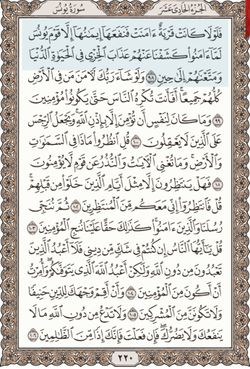 الجزء الحادي عشر
سورة يونس
فَلَوْلَا كَانَتْ قَرْيَةٌ ءَامَنَتْ فَنَفَعَهَآ إِيمَٰنُهَآ إِلَّا قَوْمَ يُونُسَ
لَمَّآ ءَامَنُوا۟ كَشَفْنَا عَنْهُمْ عَذَابَ ٱلْخِزْىِ فِى ٱلْحَيَوٰةِ ٱلدُّنْيَا
وَمَتَّعْنَٰهُمْ إِلَىٰ حِينٍ ٩٨ وَلَوْ شَآءَ رَبُّكَ لَءَامَنَ مَن فِى ٱلْأَرْضِ
كُلُّهُمْ جَمِيعًا أَفَأَنتَ تُكْرِهُ ٱلنَّاسَ حَتَّىٰ يَكُونُوا۟ مُؤْمِنِينَ
٩٩ وَمَا كَانَ لِنَفْسٍ أَن تُؤْمِنَ إِلَّا بِإِذْنِ ٱللَّهِ وَيَجْعَلُ ٱلرِّجْسَ
عَلَى ٱلَّذِينَ لَا يَعْقِلُونَ ١٠٠ قُلِ ٱنظُرُوا۟ مَاذَا فِى ٱلسَّمَٰوَٰتِ
وَٱلْأَرْضِ وَمَا تُغْنِى ٱلْءَايَٰتُ وَٱلنُّذُرُ عَن قَوْمٍ لَّا يُؤْمِنُونَ
١٠١ فَهَلْ يَنتَظِرُونَ إِلَّا مِثْلَ أَيَّامِ ٱلَّذِينَ خَلَوْا۟ مِن قَبْلِهِمْ
قُلْ فَٱنتَظِرُوٓا۟ إِنِّى مَعَكُم مِّنَ ٱلْمُنتَظِرِينَ ١٠٢ ثُمَّ نُنَجِّى
رُسُلَنَا وَٱلَّذِينَ ءَامَنُوا۟ كَذَٰلِكَ حَقًّا عَلَيْنَا نُنجِ ٱلْمُؤْمِنِينَ ١٠٣
قُلْ يَٰٓأَيُّهَا ٱلنَّاسُ إِن كُنتُمْ فِى شَكٍّ مِّن دِينِى فَلَآ أَعْبُدُ ٱلَّذِينَ
تَعْبُدُونَ مِن دُونِ ٱللَّهِ وَلَٰكِنْ أَعْبُدُ ٱللَّهَ ٱلَّذِى يَتَوَفَّىٰكُمْ وَأُمِرْتُ
أَنْ أَكُونَ مِنَ ٱلْمُؤْمِنِينَ ١٠٤ وَأَنْ أَقِمْ وَجْهَكَ لِلدِّينِ حَنِيفًا
وَلَا تَكُونَنَّ مِنَ ٱلْمُشْرِكِينَ ١٠٥ وَلَا تَدْعُ مِن دُونِ ٱللَّهِ مَا لَا
يَنفَعُكَ وَلَا يَضُرُّكَ فَإِن فَعَلْتَ فَإِنَّكَ إِذًا مِّنَ ٱلظَّٰلِمِينَ ١٠٦
٢٢٠